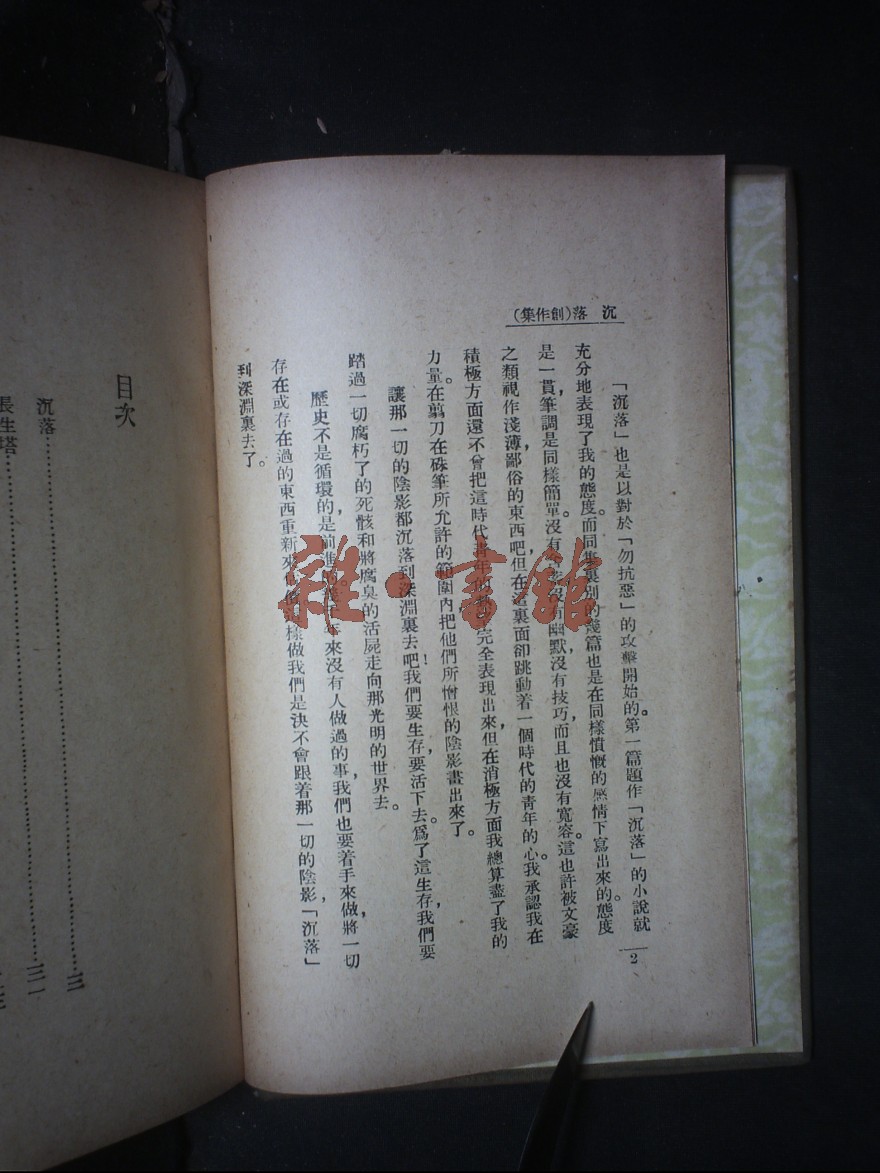 沉　落(創作集)
2
「沉落」也是以對於「勿抗惡」的攻擊開始的。第一篇題作「沉落」的小說就
充分地表現了我的態度。而同集裏別的幾篇也是在同樣憤慨的感情下寫出來的。態度
是一貫，筆調是同樣簡單。沒有幽默，沒有技巧，而且也沒有寬容。這也許被文豪
之類視作淺薄鄙俗的東西吧。但在這裏面卻跳動着一個時代的青年的心。我承認我在
積極方面還不曾把這時代青年的完全表現出來，但在消極方面我總算盡了我的
力量。在翦刀在硃筆所允許的範圍內把他們所憎恨的陰影畫出來了。
讓那一切的陰影都沉落到深淵裏去吧！我們要生存，要活下去。爲了這生存，我們要
踏過一切腐朽了的死骸和將腐臭的活屍走向那光明的世界去。
歷史不是循環的，是前進的。來沒有人做過的事我們也要着手來做，將一切
存在或存在過的東西重新來樣做我們是決不會跟着那一切的陰影「沉落」
到深淵裏去了。
目次
沉落……三
長生塔……三一
雜·書館